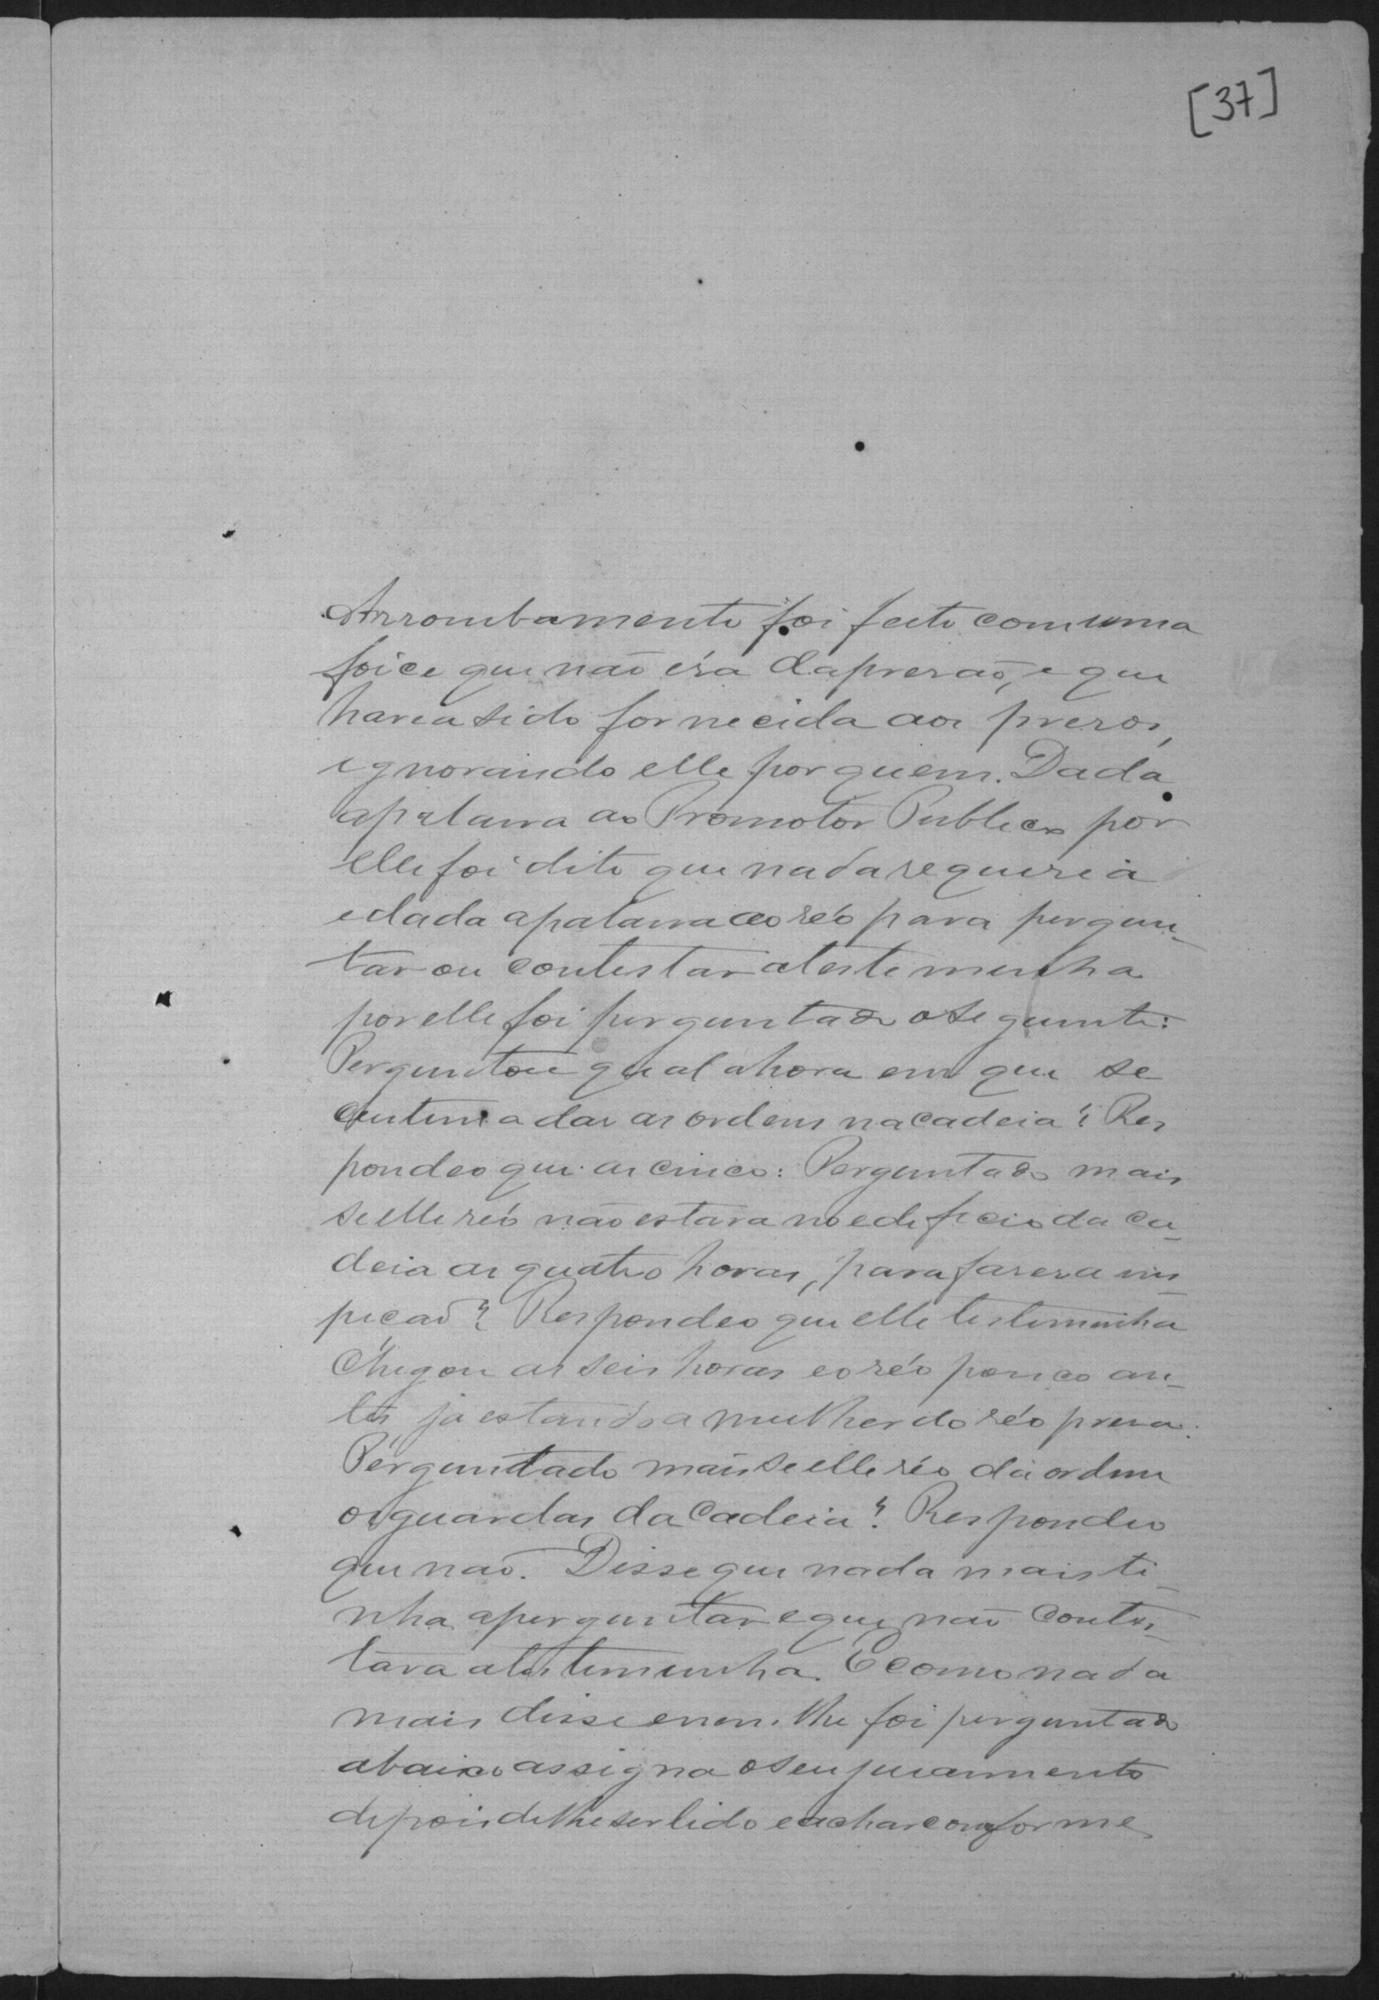 [37]
Arrombamento foi feito com uma
foice que não éra da presão, e que
havia sido fornecida aos presos,
ignorando elle por quem. Dada
apalavra ao Promotor Publico por
elle foi dito que nada requeria
e dada apalavra ao réo para pergun-
tar ou contestar atestemunha
por elle foi perguntado o seguinte:
Perguntou qual ahora em que se
custuma dar as ordens na cadeia? Res
pondeo que as cinco: Perguntado mais
se elle réo não estava no edeficio da ca-
deia as quatro horas, para faser a ins-
peção? Respondeo que elle testemunha
chegou as seis horas e o réo pouco an-
tes ja estando a mulher do réo presa.
Perguntado mais se elle réo dá ordem
os guardas da Cadeia? Respondeo
que não. Disse que nada mais ti-
nha aperguntar e que não contes-
tava atestemunha. E como nada
mais disse e nem lhe foi perguntado
abaixo assigna o seu juramento
depois de lhe ser lido e achar conforme